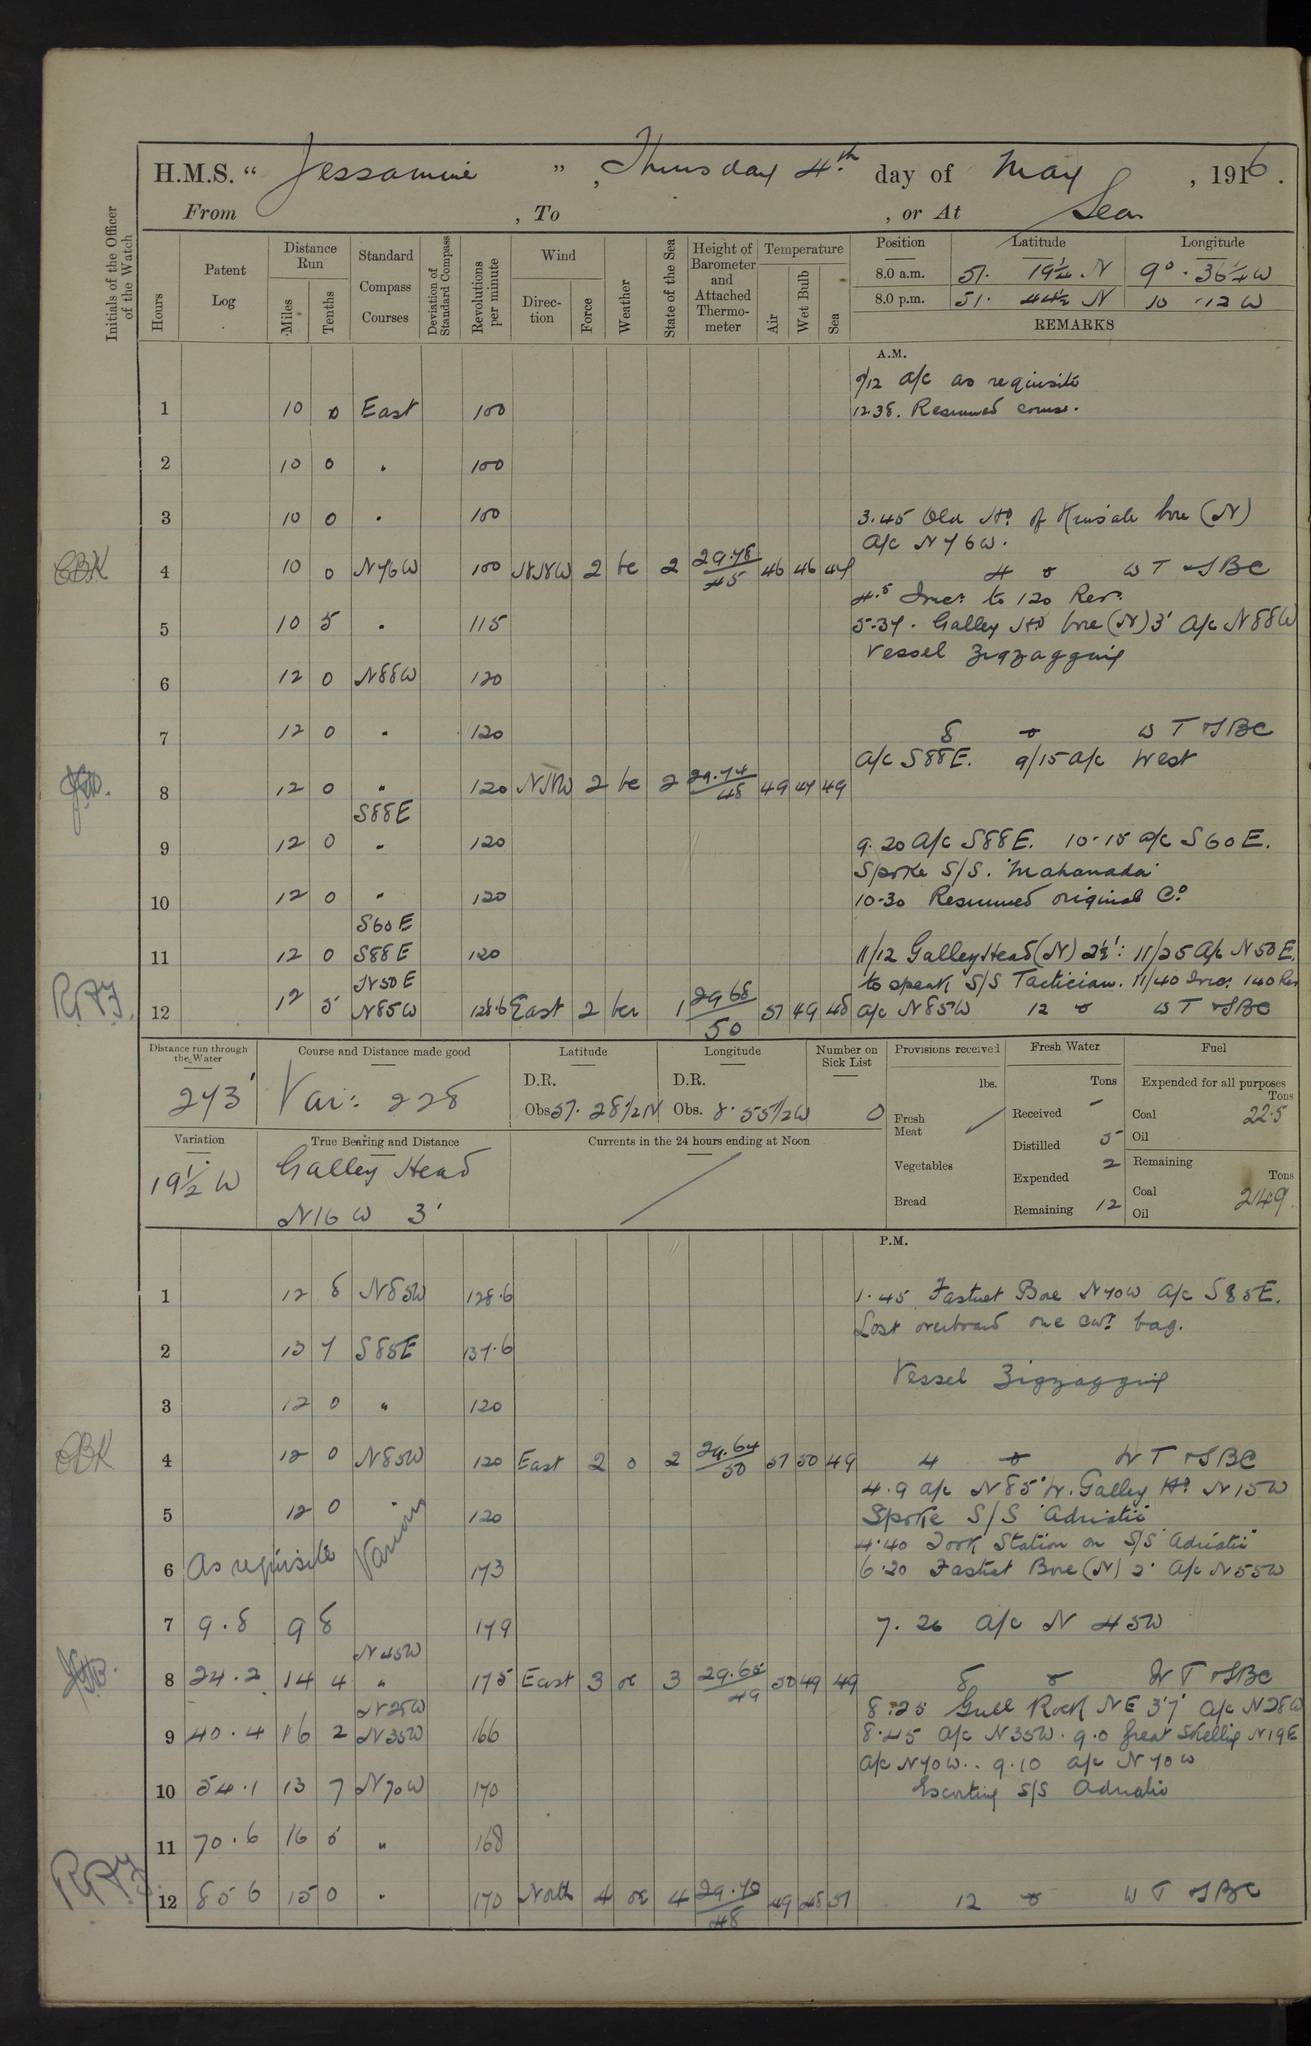 H.M.S. " Jessamine ", Thursday 4th day of May, 1916.
From , To , or At Sea
Initials of the Officer of the Watch
Hours
Patent Log
Distance Run
Miles
Tenths
Standard Compass Courses
Deviation of Standard Compass
Revolutions per minute
Wind
Direction
Force
Weather
State of the Sea
Height of Barometer and Attached Thermometer
Temperature
Air
Wet Bulb
Sea
Position Latitude Longitude
8.0 a.m. 51. 19 1/4 N 9°. 36 1/4 W
8.0 p.m. 51. 44 1/2 N 10 . 12 W
REMARKS
A.M.
9/12 A/c as requisite
1 10 0 East 100 12.38. Resumed course.
2 10 0 " 100
3 10 0 " 100 3.45 Old Hd. of Kinsale bore (N)
A/c N76W.
4 10 0 N76W 100 NNW 2 bc 2 29.78/45 46 46 47 4 W T & SBC
4.5 Incr. to 120 Rev.
5 10 5 " 115 5.37. Galley Hd bore (N) 3' A/c N88W
Vessel zigzagging
6 12 0 N88W 120
7 12 0 " 120 8 W T & SBC
A/c S88E. 9/15 a/c West
8 12 0 " 120 NNW 2 bc 2 29.74/48 49 47 49
S88E
9 12 0 " 120 9.20 A/c S88E. 10-15 a/c S60E.
Spoke S/S. "Mahanada"
10 12 0 " 120 10-30 Resumed original Co.
S60E
11 12 0 S88E 120 11/12 Galley Head (N) 2 1/2': 11/25 A/c N50E.
N50E to speak S/S Tactician. 11/40 Incr. 140 Rev
12 12 5 N85W 128.6 East 2 bcr 1 29.68/50 51 49 48 a/c N85W 12 W T & SBC
Distance run through the Water
273'
Course and Distance made good
Var: 228
Latitude
D.R.
Obs 51. 28 1/2 N
Longitude
D.R.
Obs. 8. 55 1/2 W
Number on Sick List
0
Provisions received
lbs.
Fresh Meat
Vegetables
Bread
Fresh Water
Tons
Received -
Distilled 5
Expended 2
Remaining 12
Fuel
Expended for all purposes
Tons
Coal 22.5
Oil
Remaining
Tons
Coal 249
Oil
Variation
19 1/2 W
True Bearing and Distance
Galley Head
N16W 3'
Currents in the 24 hours ending at Noon
P.M.
1 12 8 N85W 128.6 1.45 Fastnet Bore N70W A/c S85E.
Lost overboard one cwt bag.
2 13 7 S85E 137.6
Vessel Zigzagging
3 12 0 " 120
4 12 0 N85W 120 East 2 o 2 29.64/50 51 50 49 4 W T & SBC
4.9 a/c N85°W. Galley Hd. N15W
5 12 0 Various 120 Spoke S/S "Adriatic"
4.40 Took Station on S/S "Adriatic"
6 As requisite 173 6.20 Fastnet Bore (N) 2' A/c N55W
7 9.8 9 8 179 7.26 a/c N 45W
N45W
8 24.2 14 4 " 175 East 3 oc 3 29.65/49 50 49 49 8 W T & SBC
N28W 8.25 Gull Rock NE 3'7' a/c N28W
9 40.4 16 2 N35W 166 8.45 a/c N35W. 9.0 Great Skellig N19E
a/c N70W.. 9.10 a/c N70W
10 54.1 13 7 N70W 170 Escorting S/S Adriatic
11 70.6 16 5 " 168
12 85 6 15 0 " 170 North 4 oc 4 29.70/48 49 48 51 12 W T & SBC